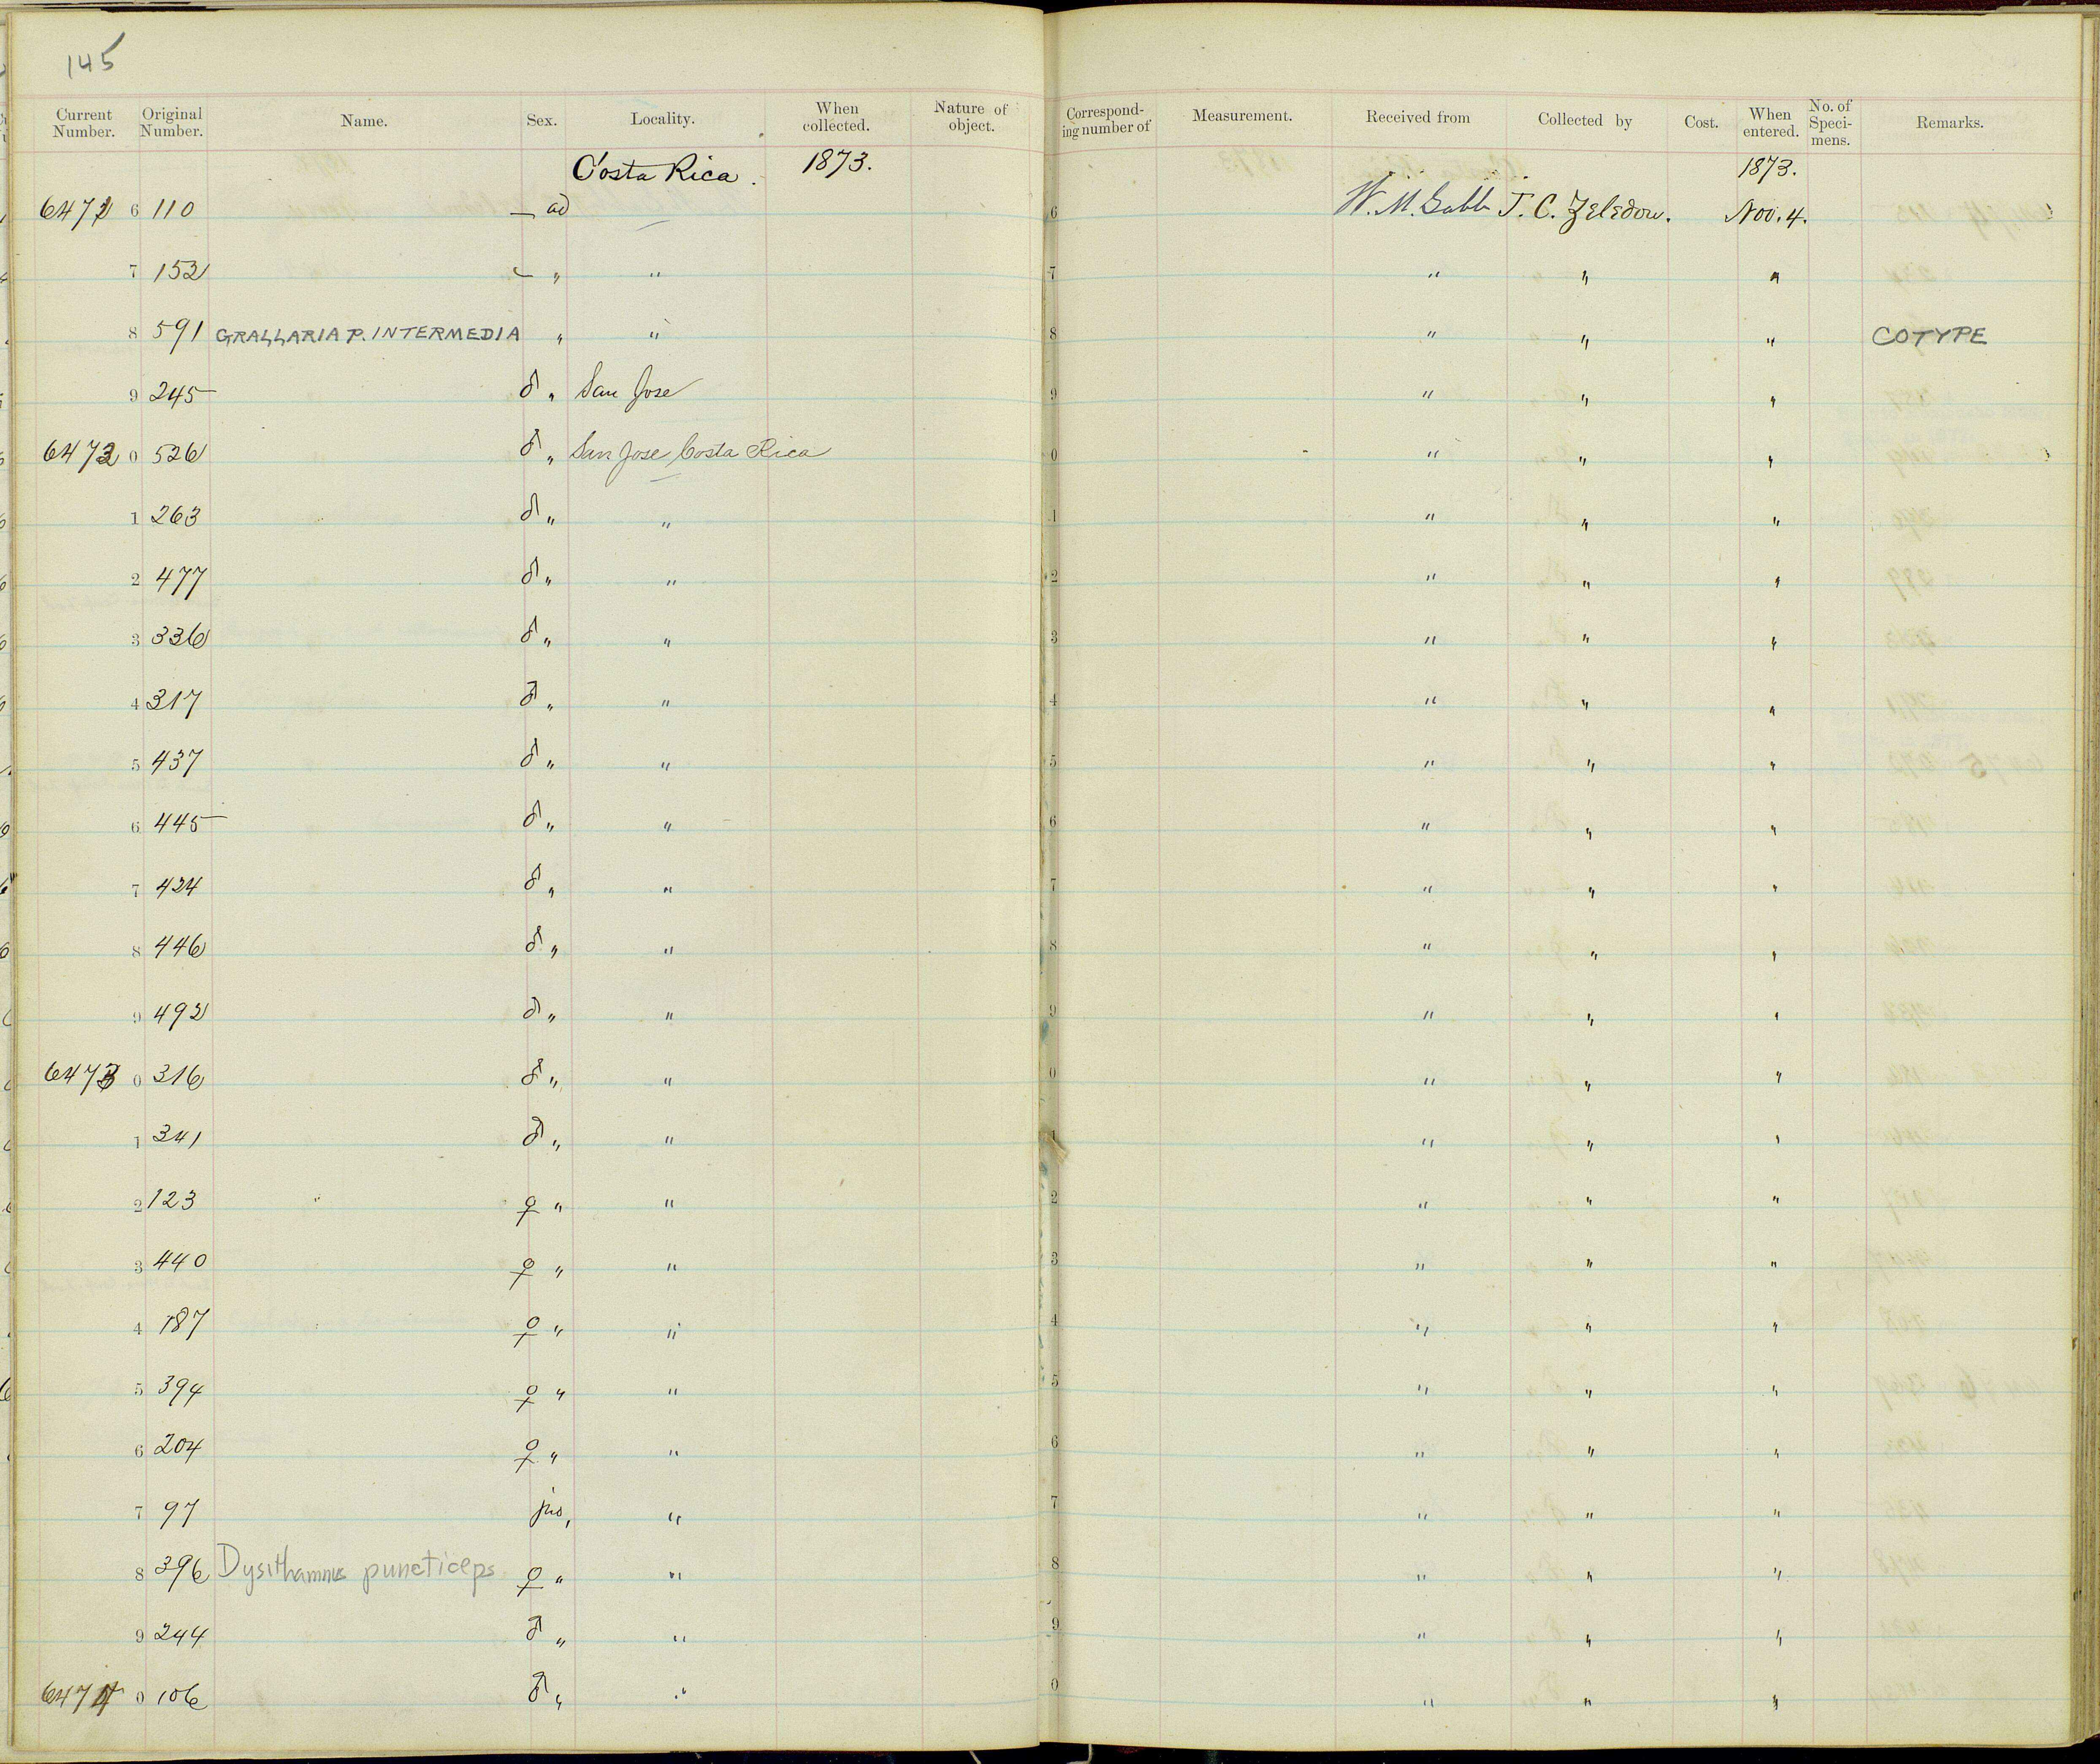 145
Current Number. Original Number. Name. Sex. Locality. When collected. Nature of object. Corresponding number of Measurement. Received from Collected by Cost. When entered. No. of Specimens. Remarks.
Costa Rica. 1873. 1873.
6471 6 110 — ad 6 W. M. Gabb J. C. Zeledon. Nov. 4.
7 152 — " " 7 " " "
8 591 GRALLARIA P. INTERMEDIA " " 8 " " " COTYPE
9 245 ♂ " San Jose 9 " " "
6472 0 526 ♂ " San Jose Costa Rica 0 " " "
1 263 ♂ " " 1 " " "
2 477 ♂ " " 2 " " "
3 336 ♂ " " 3 " " "
4 317 ♂ " " 4 " " "
5 437 ♂ " " 5 " " "
6 445 ♂ " " 6 " " "
7 424 ♂ " " 7 " " "
8 446 ♂ " " 8 " " "
9 492 ♂ " " 9 " " "
6473 0 316 ♂ " " 0 " " "
1 341 ♂ " " 1 " " "
2 123 ♀ " " 2 " " "
3 440 ♀ " " 3 " " "
4 187 ♀ " " 4 " " "
5 394 ♀ " " 5 " " "
6 204 ♀ " " 6 " " "
7 97 juv, " 7 " " "
8 396 Dysithamnus puncticeps ♀ " " 8 " " "
9 244 ♂ " " 9 " " "
6474 0 106 ♂ " " 0 " " "